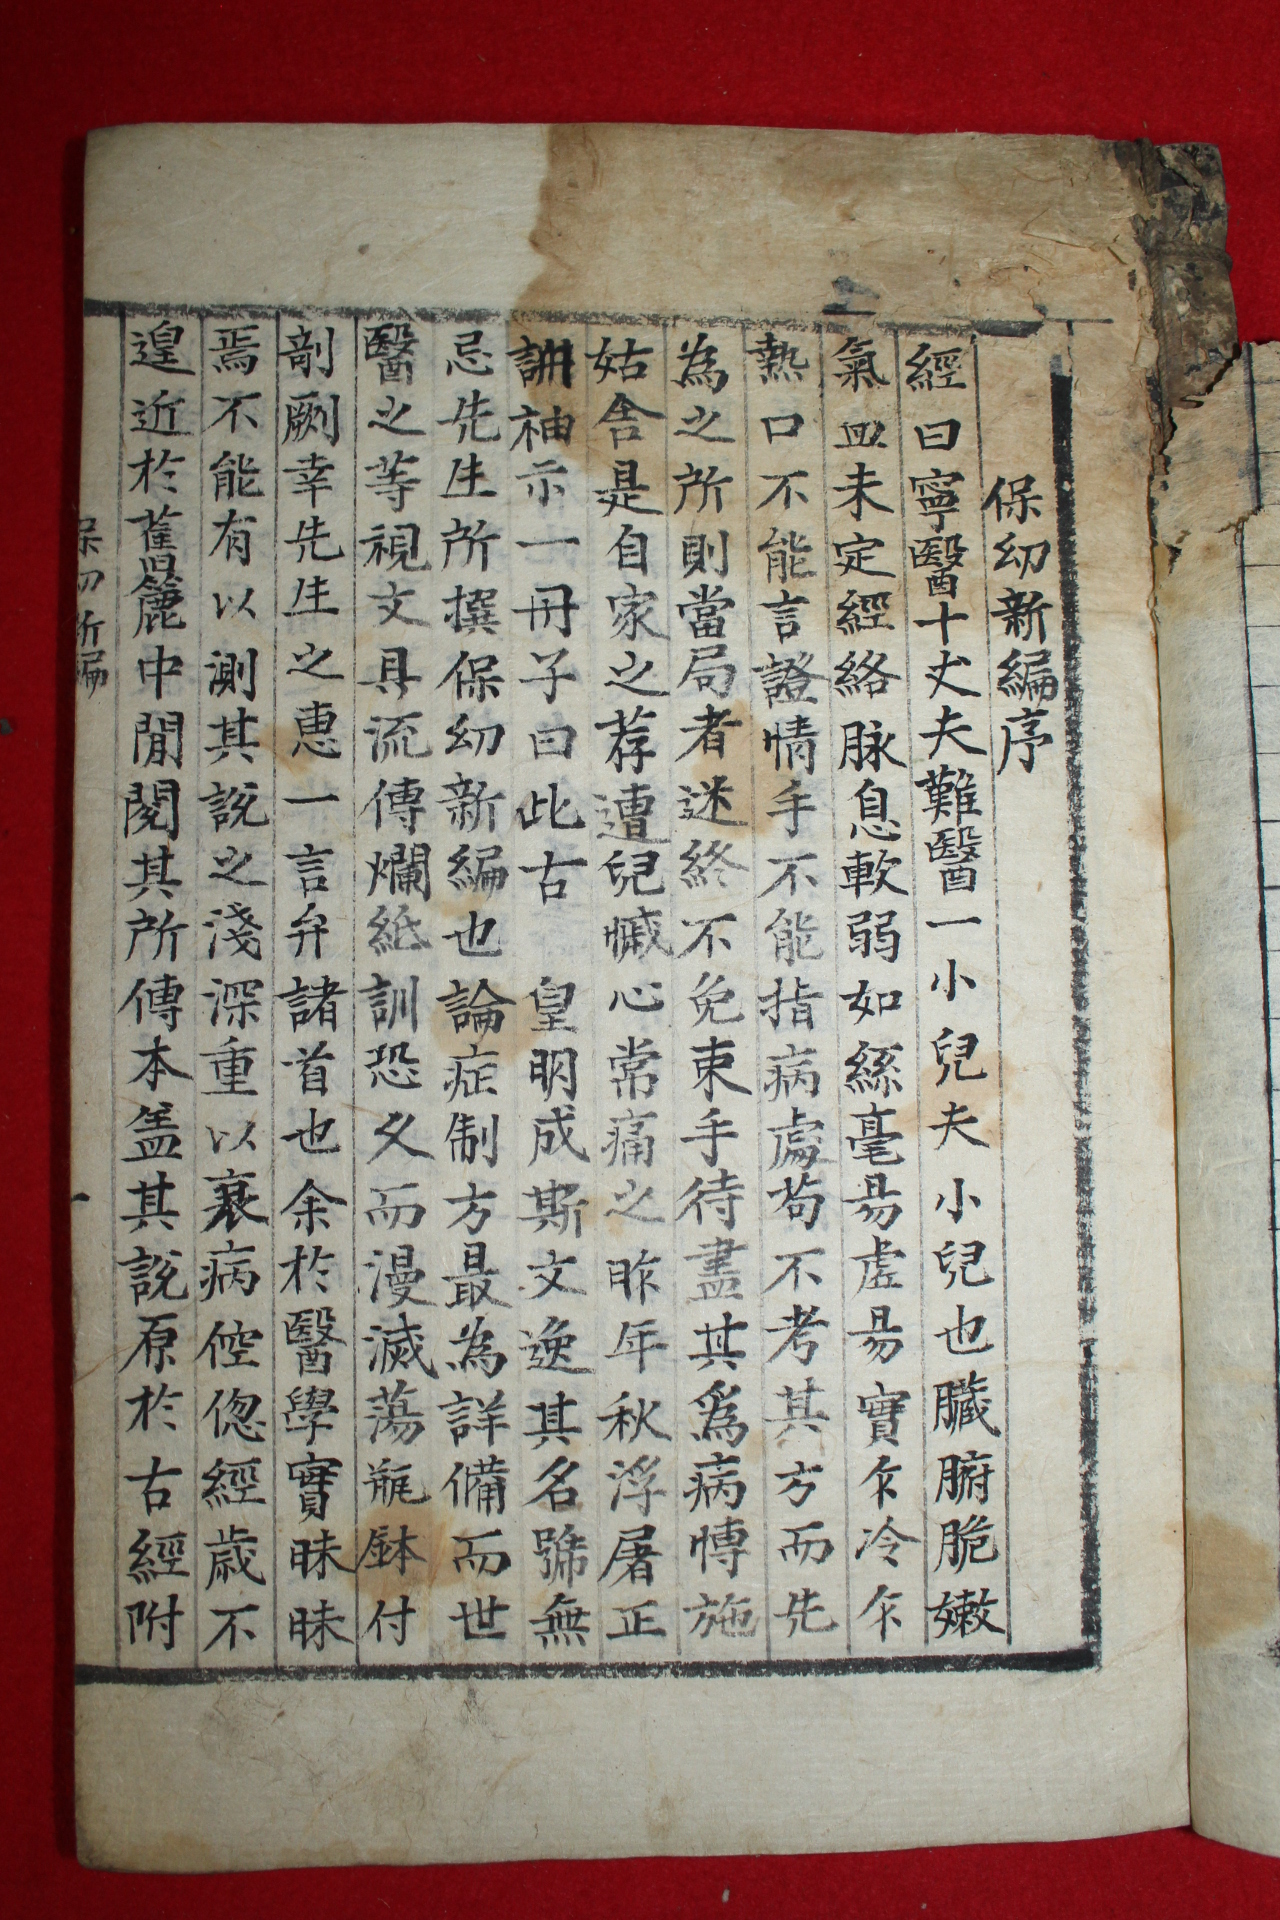 保幼新編序
經曰寧醫十丈夫難醫一小兒夫小兒也臟腑脆嫩
氣血未定經絡脉息軟弱如絲毫昜虛昜實乍冷乍
熱口不能言證情手不能指病處苟不考其方而先
為之所則當局者迷終不免束手待盡其爲病慱施
姑舍是自家之荐遭兒慽心常痛之昨年秋浮屠正
訓袖示一冊子曰此古 皇明成斯文逸其名號無
忌先生所撰保幼新編也論症制方最為詳備而世
醫之等視文具流傳爛紙訓恐久而漫滅蕩甁鉢付
剞劂幸先生之惠一言弁諸首也余於醫學實昧昧
焉不能有以測其說之淺深重以衰病倥偬經歲不
遑近於舊簏中閒閱其所傳本盖其說原於古經附
保幼新編 一